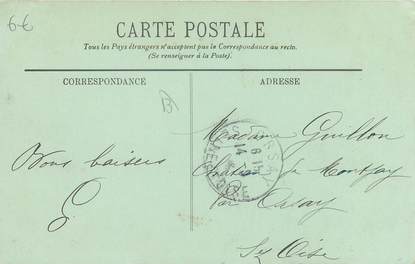 6€
CARTE POSTALE
Tous les Pays étrangers n'acceptent pas la Correspondance au recto.
(Se renseigner à la Poste).
CORRESPONDANCE
ADRESSE
B
Madame Guillon
de Montjay
par Orsay
Bons baisers
G
Sne Oise